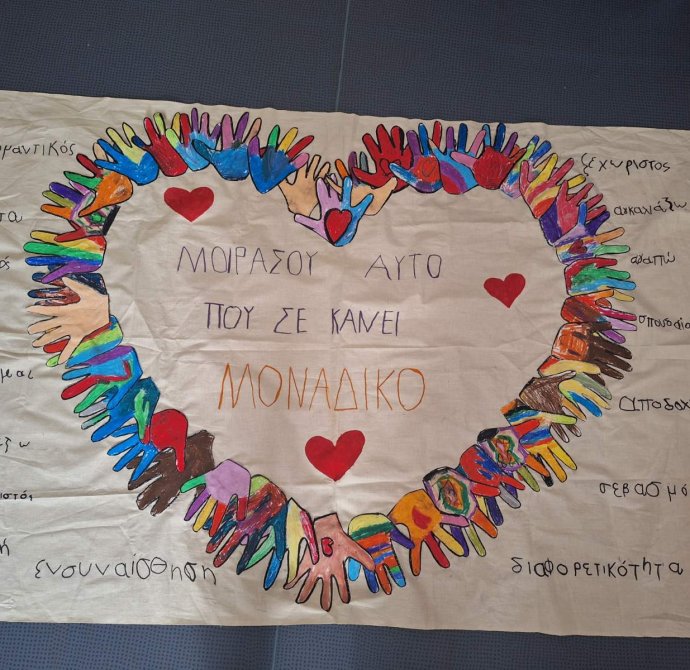 ΜΟΙΡΑΣΟΥ ΑΥΤΟ
ΠΟΥ ΣΕ ΚΑΝΕΙ
ΜΟΝΑΔΙΚΟ
μαντικός
τα
ός
ενσυναίσθηση
ξεχωριστος
αγκαλιάζω
αγαπώ
σπουδαί
Αποδοχ
σεβασμό
διαφορετικότητα